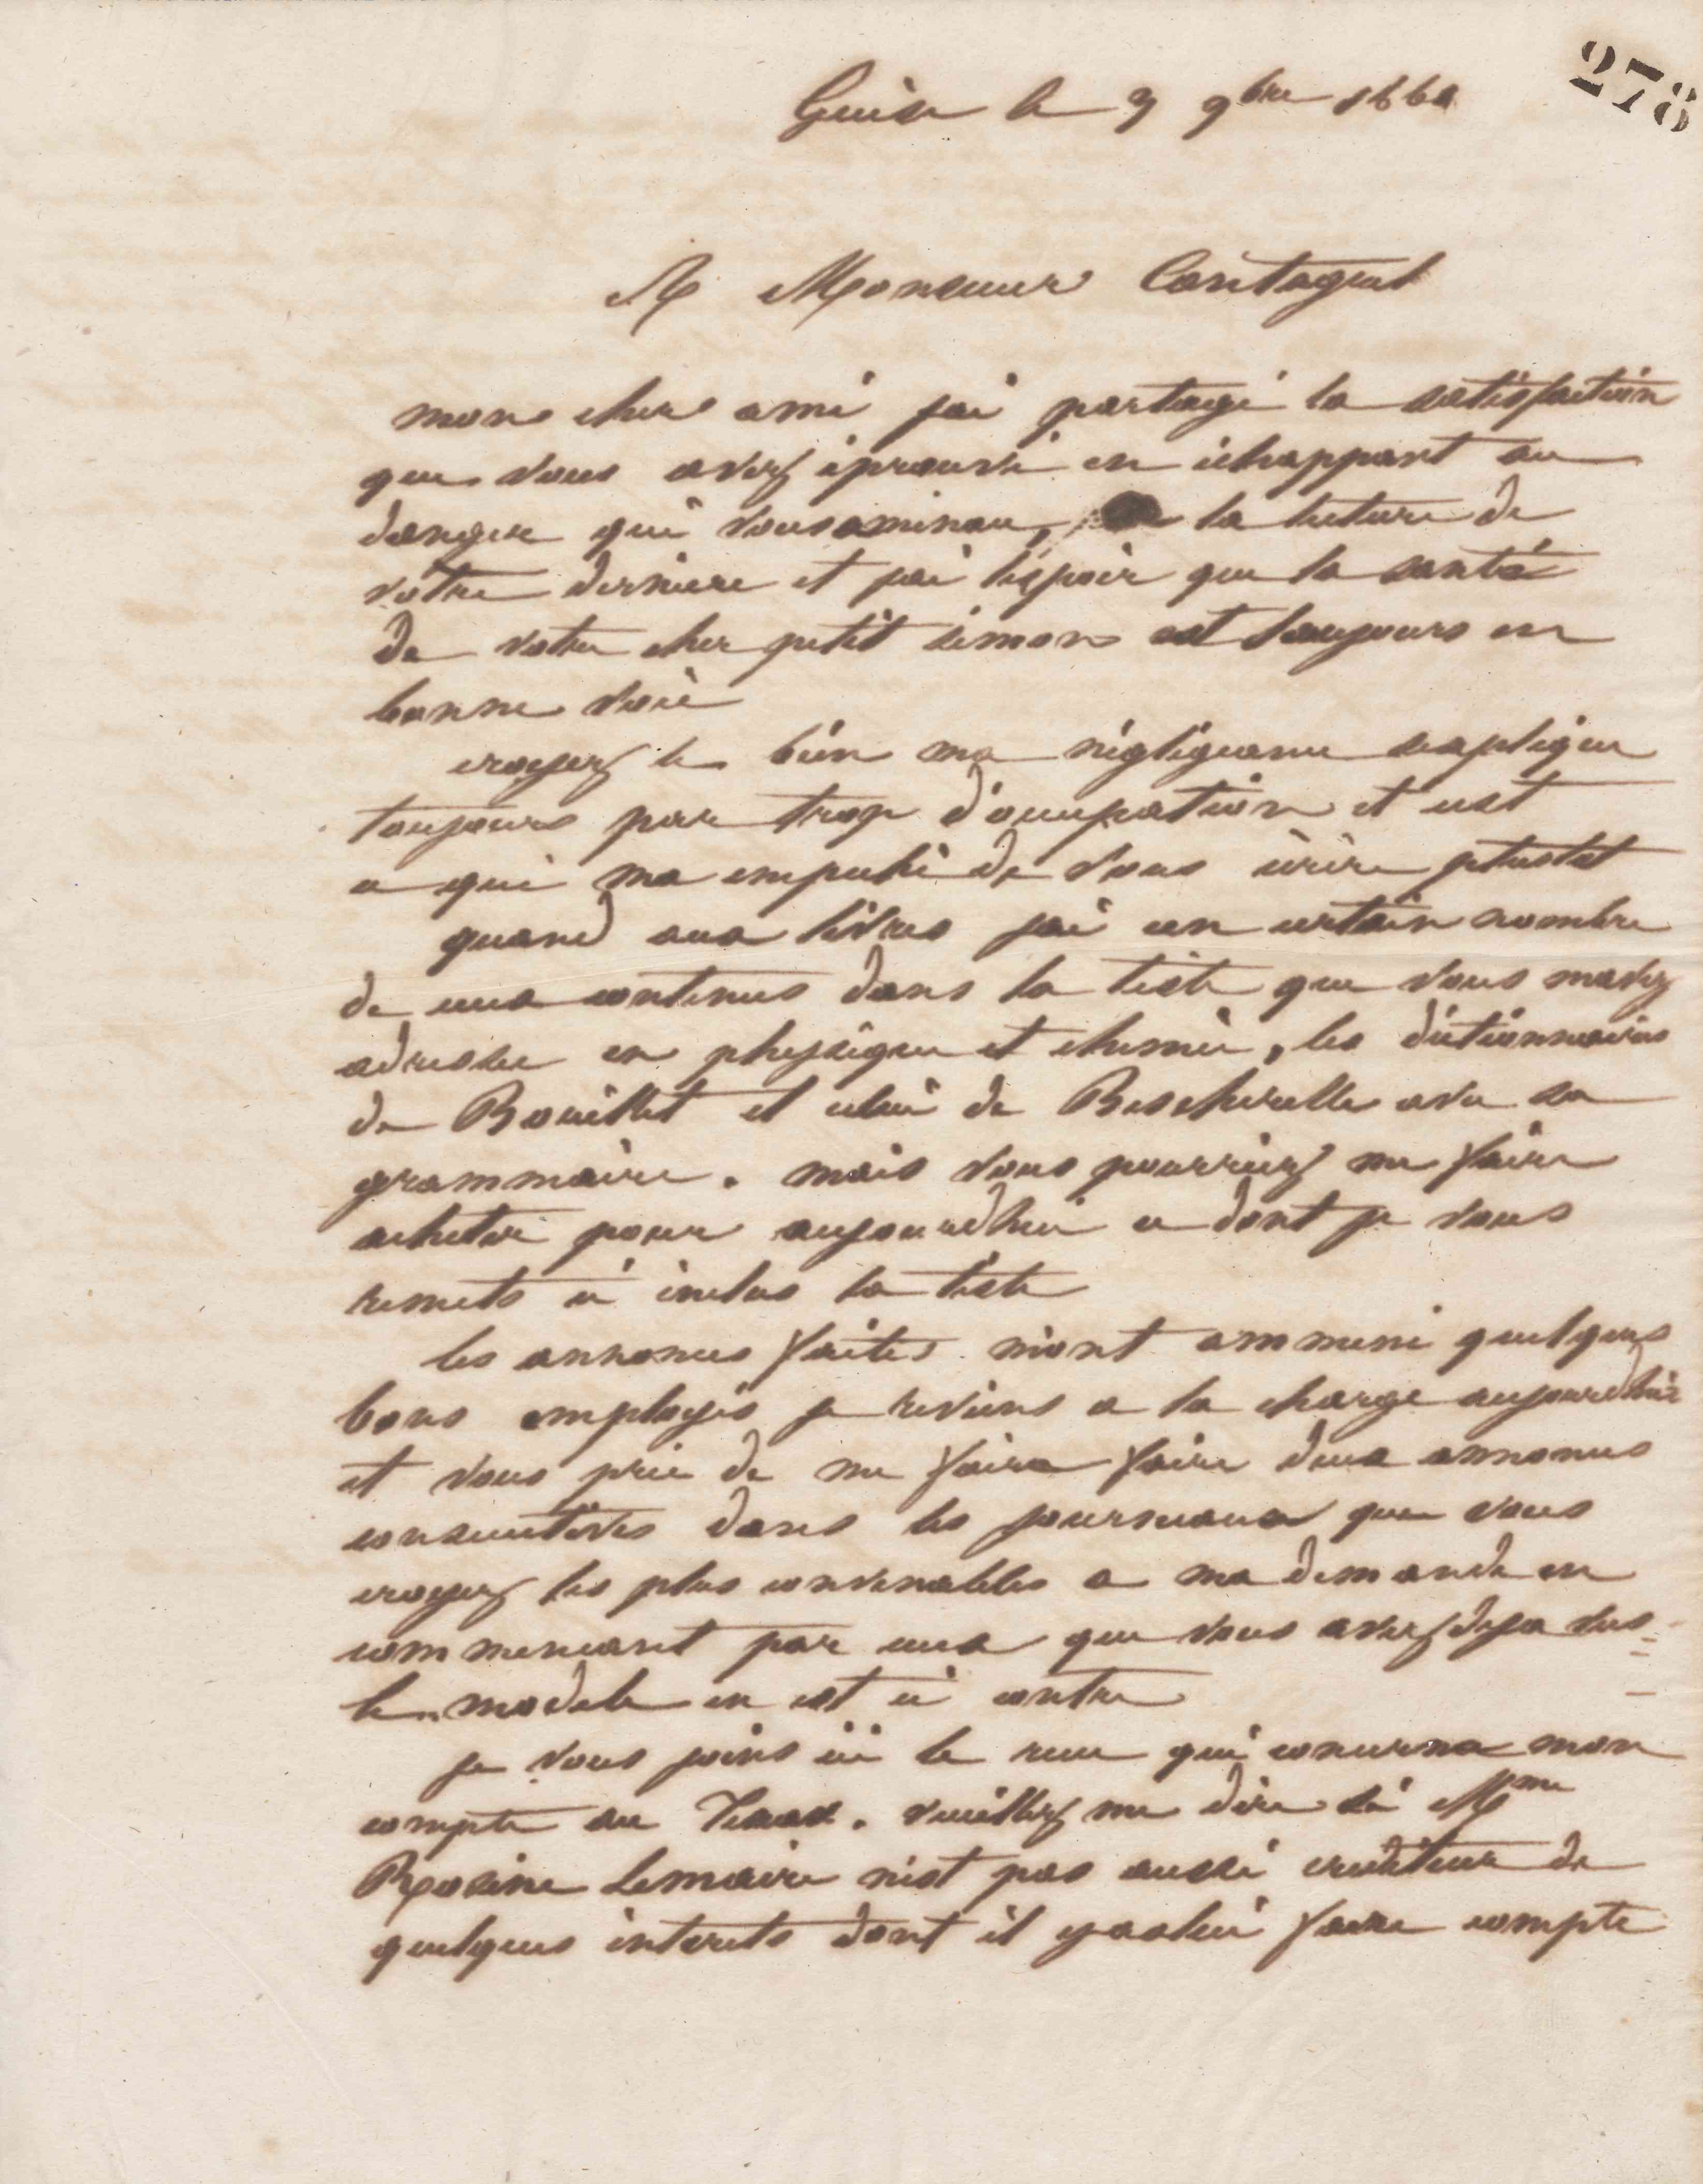 278
Guise le 9 9bre 1860
A Monsieur Cantagrel
mon cher ami jai partagé la satisfaction
que vous avez éprouvé en échappant au
danger qui vous la lecture de
votre derniere et jai lespoir que la santé
de votre cher petit simon est toujours en
bonne voie
croyez le bien ma négligeance sexplique
toujours par trop d'occupation et cest
ce qui ma empeché de vous écrire plustot
quand aux livres jai un certain nombre
de ceux contenus dans la liste que vous mavez
adressée en physique et chimie, les dictionnaires
de Bouillet et celui de Bescherelle avec sa
grammaire. mais vous pourriez me faire
acheter pour aujourdhui ce dont je vous
remets ci inclus la liste
les annonces faites m'ont ammené quelques
bons employés je reviens a la charge aujourdhui
et vous prie de me faire faire deux annonces
consecutives dans les journeaux que vous
croyez les plus convenables a ma demande en
commencant par ceux que vous avez deja vus
le modele en est ci contre
je vous joins ici le recu qui concerne mon
compte au Texas. veuillez me dire si Mme
Rosine Lemaire nest pas aussi crediteur de
quelques interets dont il y a alui faire compte